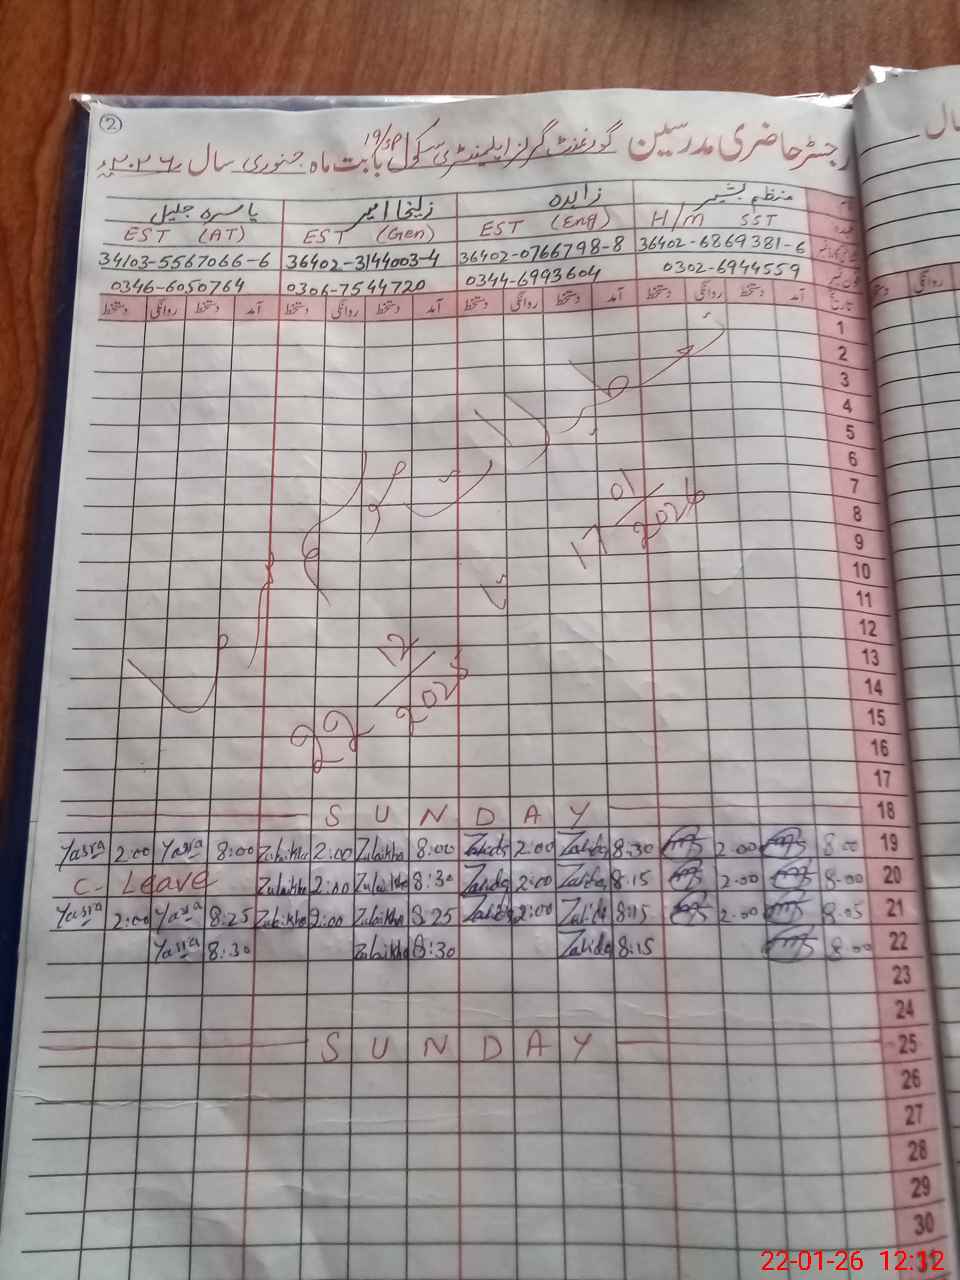 ②
رجسٹر حاضری مدرسین گورنمنٹ گرلز ایلیمنٹری سکول 19/SP بابت ماہ جنوری سال ۲۰۲۶ء
یاسرہ جلیل زلیخا امیر زاہدہ منظم بشیر
EST (AT) EST (Gen) EST (Eng) H/M SST
34103-5567066-6 36402-3144003-4 36402-0766798-8 36402-6869381-6
0346-6050764 0306-7544720 0344-6993604 0302-6944559
دستخط روانگی دستخط آمد دستخط روانگی دستخط آمد دستخط روانگی دستخط آمد دستخط روانگی دستخط آمد تاریخ
1
2
3
4
5
6
7
17 01/2026
8
9
10
11
12
13
22 12/2025
14
15
16
17
SUNDAY 18
Yasra 2:00 Yasra 8:00 Zulaikha 2:00 Zulaikha 8:00 Zahida 2:00 Zahida 8:30 2:00 8:00 19
C- Leave Zulaikha 2:00 Zulaikha 8:30 Zahida 2:00 Zahida 8:15 2:00 8:00 20
Yasra 2:00 Yasra 8:25 Zulaikha 2:00 Zulaikha 8:25 Zahida 2:00 Zahida 8:15 2:00 8:05 21
Yasra 8:30 Zulaikha 8:30 Zahida 8:15 8:00 22
23
24
SUNDAY 25
26
27
28
29
30
31
سال
روانگی
22-01-26 12:12